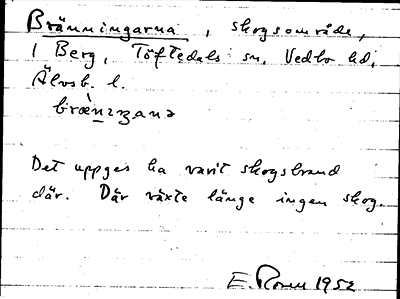 Bränningarna, skogsområde,
1 Berg, Töftedals sn, Vedbo hd,
Älvsb. l.
Det uppges ha varit skogsbrand
där. Där växte länge ingen skog.
E. Rosen 1952